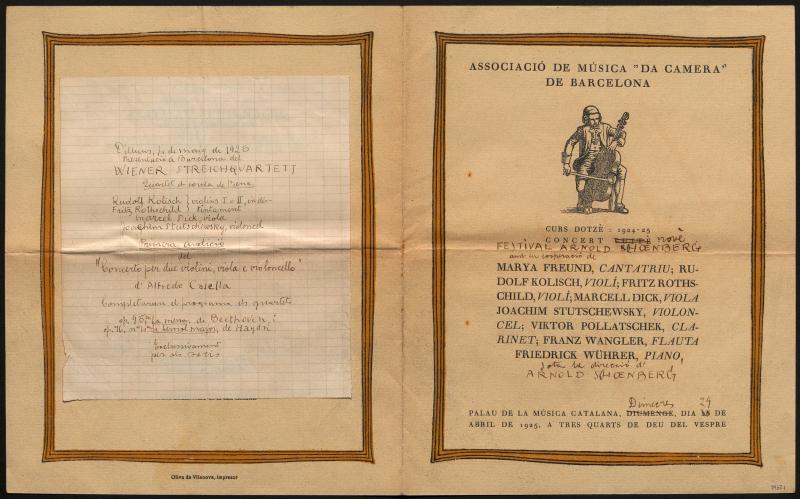 Dilluns, de maig de 1926
Presentació a Barcelona del
WIENER STREICHQUARTETT
Quartet de corda de Viena
Rudolf Kolisch } violins I e II, indis-
Fritz Rothschild } tintament
Marcel Dick, viola
Joachim Stutschewsky, violoncel
Primera audició
del
"Concerto per due violini, viola e violoncello"
d'Alfredo Casella
Completaran el programa els quartets
op. en la menor, de Beethoven, i
op. 76, nº en si bemol major, de Haydn
Exclusivament
per als socis
Oliva de Vilanova, impressor
ASSOCIACIÓ DE MÚSICA "DA CAMERA"
DE BARCELONA
CURS DOTZÈ : 1924-25
CONCERT novè
FESTIVAL ARNOLD SCHŒNBERG
amb la cooperació de
MARYA FREUND, CANTATRIU; RU-
DOLF KOLISCH, VIOLÍ; FRITZ ROTHS-
CHILD, VIOLÍ; MARCELL DICK, VIOLA
JOACHIM STUTSCHEWSKY, VIOLON-
CEL; VIKTOR POLLATSCHEK, CLA-
RINET; FRANZ WANGLER, FLAUTA
FRIEDRICK WÜHRER, PIANO,
sota la direcció d'
ARNOLD SCHŒNBERG
Dimecres 29
PALAU DE LA MÚSICA CATALANA, DIUMENGE, DIA DE
ABRIL DE 1925, A TRES QUARTS DE DEU DEL VESPRE